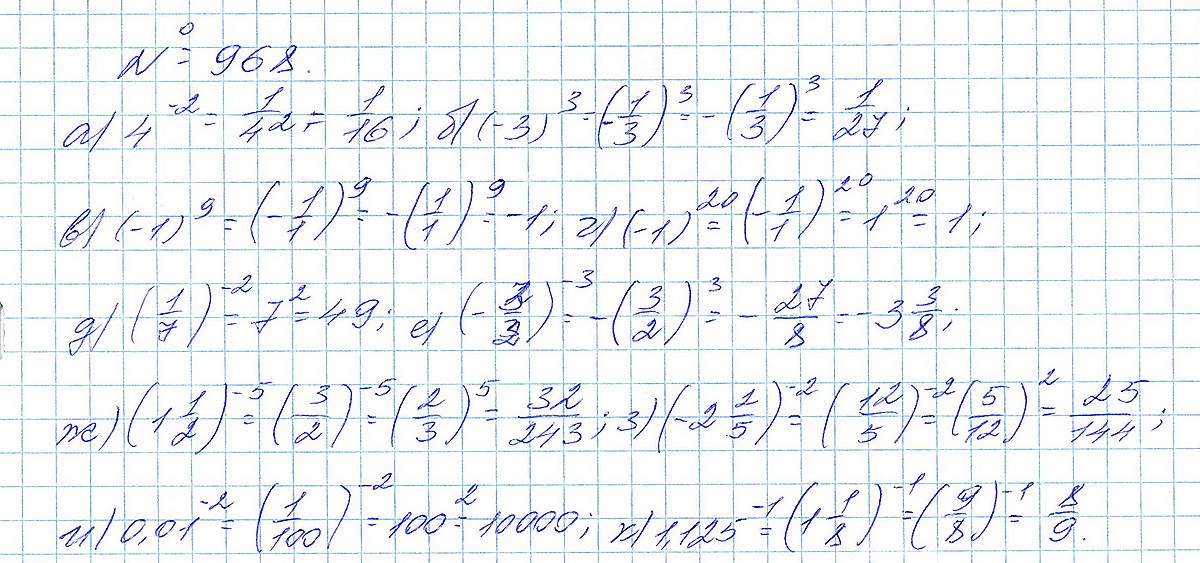 № 968.
а) 4^-2 = 1/4^2 = 1/16; б) (-3)^3 = (-1/3)^3 = -(1/3)^3 = 1/27;
в) (-1)^9 = (-1/1)^9 = -(1/1)^9 = -1; г) (-1)^20 = (-1/1)^20 = 1^20 = 1;
д) (1/7)^-2 = 7^2 = 49; е) (-2/3)^-3 = -(3/2)^3 = -27/8 = -3 3/8;
ж) (1 1/2)^-5 = (3/2)^-5 = (2/3)^5 = 32/243; з) (-2 2/5)^-2 = (12/5)^-2 = (5/12)^2 = 25/144;
и) 0,01^-2 = (1/100)^-2 = 100^2 = 10000; к) 1,125^-1 = (1 1/8)^-1 = (9/8)^-1 = 8/9.